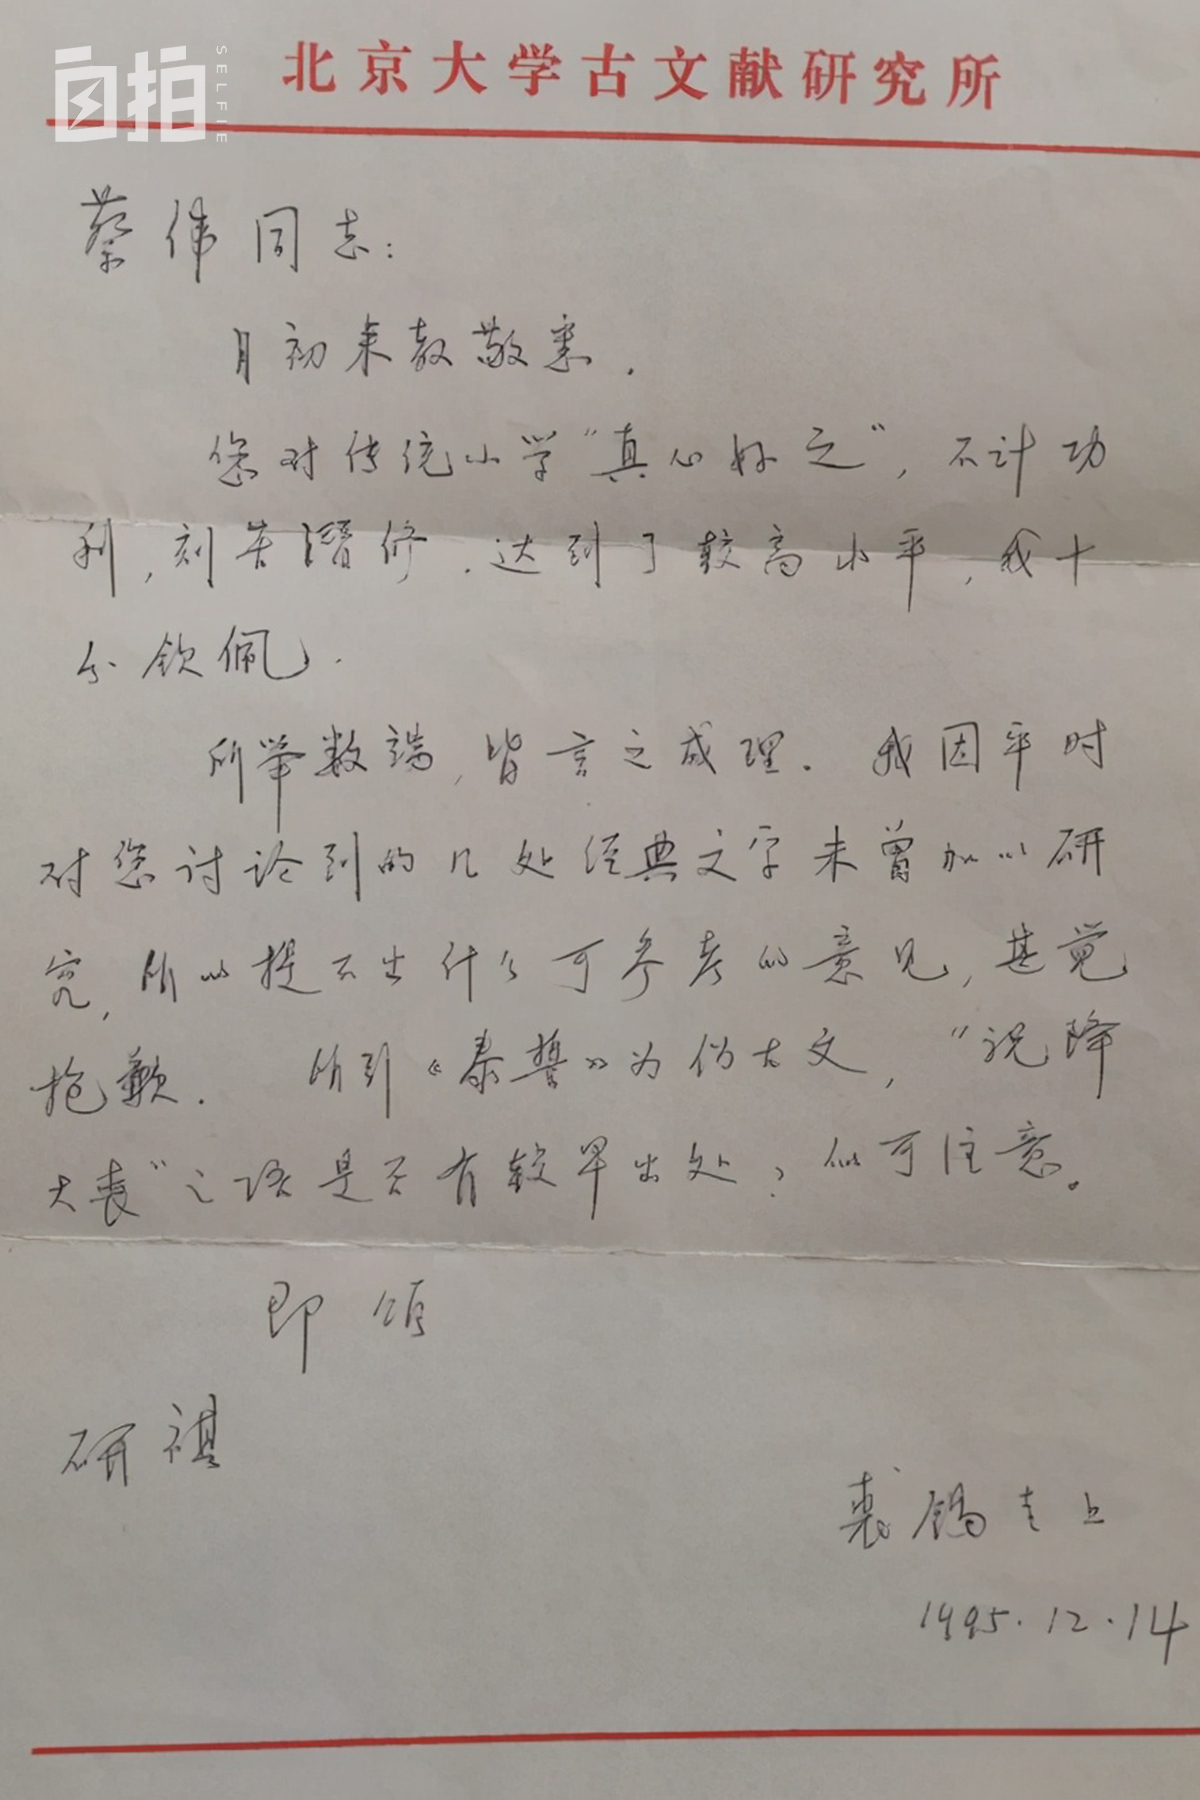 自拍
SELFIE
北京大学古文献研究所
蔡伟同志:
月初来教敬悉.
您对传统小学“真心好之”,不计功
利,刻苦潜修.达到了较高水平,我十
分钦佩.
所举数端,皆言之成理.我因平时
对您讨论到的几处经典文字未曾加以研
究,所以提不出什么可参考的意见,甚觉
抱歉.所引《泰誓》为伪古文,“祝降
大丧”之语是否有较早出处?似可注意。
即颂
研祺
裘锡圭上
1995.12.14